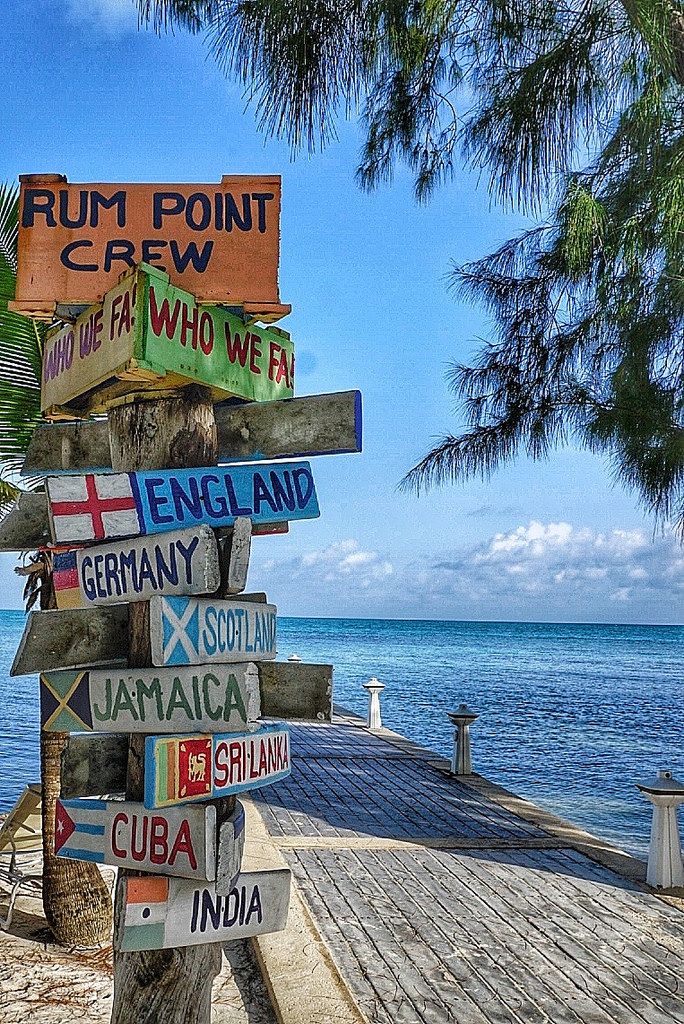 RUM POINT
CREW
WHO WE FA!
WHO WE FA!
ENGLAND
GERMANY
SCOTLAND
JAMAICA
SRI LANKA
CUBA
INDIA